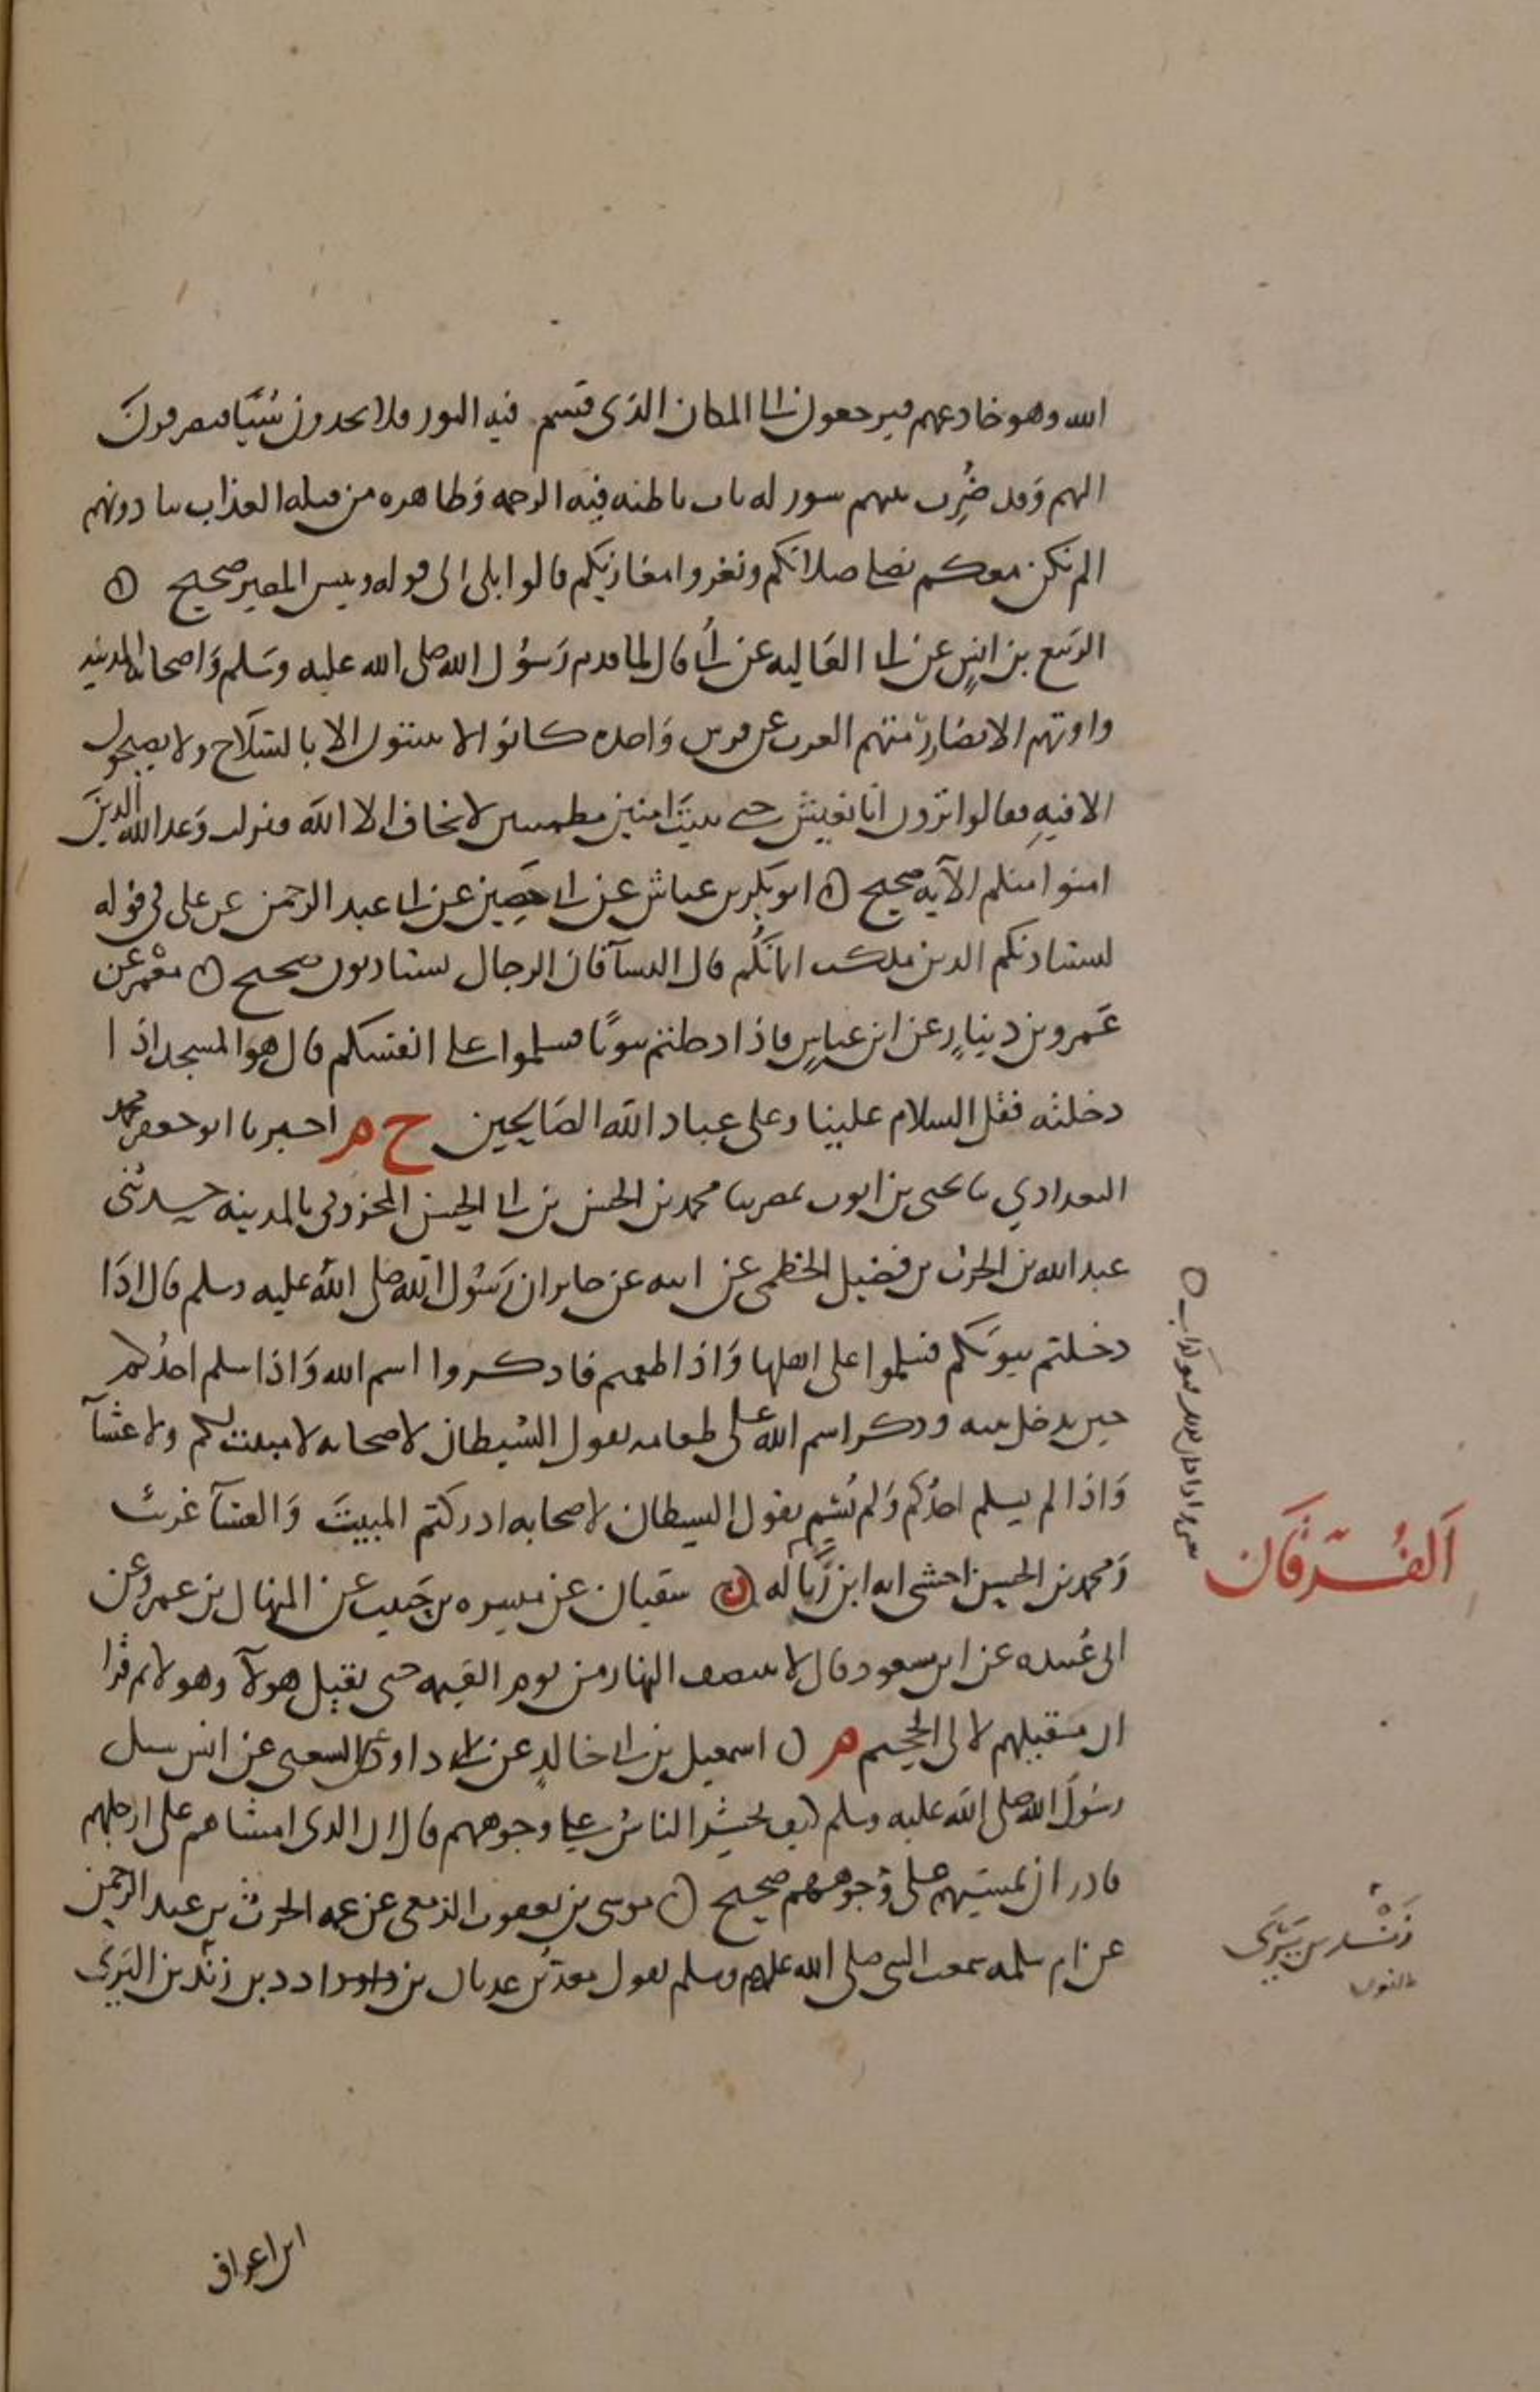 الله وهو خادعهم فيرجعون الى المكان الذى قسم فيه النور فلا يجدون شيًا فينصرفون
اليهم وَقد ضُرِب بينهم بسور له باب باطنه فيه الرحمه وَظاهره من قبله العذاب ينادونهم
الم نكن معكم نصلى صلاتكم ونغزوا مغازيكم قالوا بلى الى قوله وبيس المصير صحيح ن
الربيع بن انسٍ عن ابى العَاليه عن ابىّ قال لما قدم رَسُول الله صلى الله عليه وسَلم وَاصحابه المدينه
واوتهم الانصَار رَمتهم العرب عن قوس وَاحده كانوا لا يبيتون الا بالسّلَاح ولا يصبحون
الا فيهِ فقالوا ترون انّا نعيش حتى نبيتَ امنين مطمينين لا نخاف الا الله فنزلت وَعد الله الذينَ
امنوا منكم الآيه صحيح ن ابو بكر بن عياش عن ابى حَصِين عن ابى عبد الرحمن عن على فى قوله
ليستاذنكم الذين ملكت ايمانكُم قال النسآ فان الرجال يستاذنون صحيح ن معْمَر عن
عَمرو بن دينارٍ عن ابن عباسٍ فاذا دخلتم بيوتًا فسلموا على انفسكم قال هو المسجد اذا
دخلته فقل السلام علينا وعلى عباد الله الصَالِحين خ م اخبرنا ابو جعفر محمد
البغدادي نا يحيى بن ايوب بمصر نا محمد بن الحسن بن ابى الحسن المخزومى بالمدينه حدثنى
عبد الله بن الحرث بن فضيل الخطمى عن ابيه عن جابر ان رَسُول الله صلى الله عليه وسلم قال اذَا
دخلتم بيوتكم فسلموا على اهلها وَاذا طعمتم فاذكروا اسم الله وَاذا سلم احدُكم
حين يدخل بيته وذكر اسم الله على طعامه يقول الشيطان لاصحابه لا مبيت لكم ولا عشآ
وَاذا لم يسلم احدُكم وَلم يُسَم يقول الشيطان لاصحابه ادركتم المبيتَ وَالعشآ غريب
وَمحمد بن الحسن اخشى انه ابن زَبَاله ن سفيان عن ميسره بن حَبيب عن المنهال بن عمرو عن
ابى عُبيده عن ابن مسعود قال لا ينتصف النهار من يوم القيمه حتى يقيل هولآ وهولا ثم قرا
ان مقيلهم لالى الجحيم م ن اسمعيل بن ابى خالدٍ عن ابى داود السبيعى عن انس سيل
رسُولَ الله صلى الله عليه وسلم كيف يحشر الناسُ على وجوههم قال ان الذى امشاهم على ارجلهم
قادر ان يمشيهم على وُجوههم صحيح ن موسى بن يعقوب الزمعى عن عمه الحرث بن عبد الرحمن
عن ام سلمه سمعت النبى صلى الله عليه وسلم يقول معدّ بن عدنان بن ادد بن زند بن اليَرَى
اَلفُـرقَان
زَنْـد بن يَرَى
بالنون
ابن اعراق